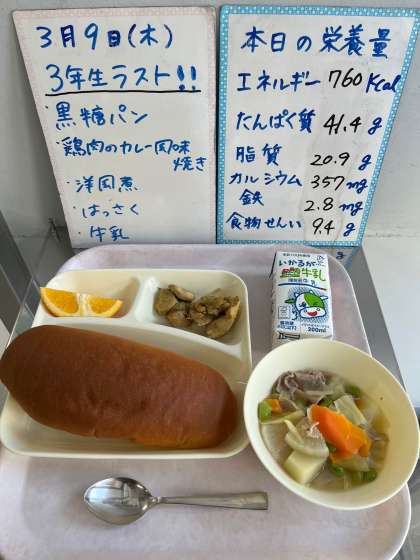 3月9日(木)
3年生ラスト!!
・黒糖パン
・鶏肉のカレー風味
焼き
・洋風煮
・はっさく
・牛乳
本日の栄養量
エネルギー 760 Kcal
たんぱく質 41.4 g
脂質 20.9 g
カルシウム 357 mg
鉄 2.8 mg
食物せんい 9.4 g
いかるが
牛乳
200ml